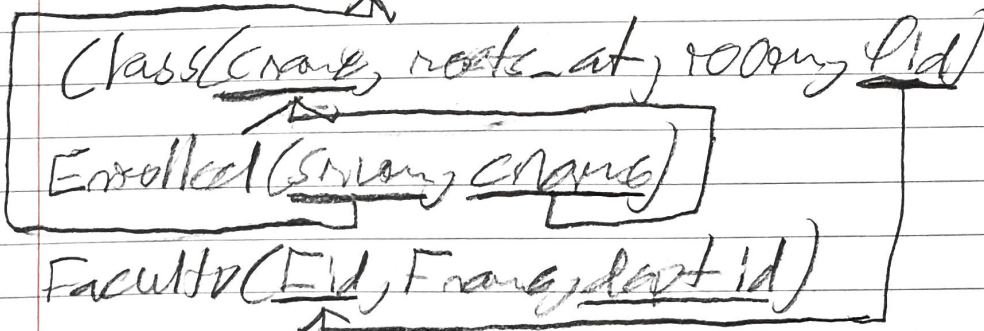 Class(cname, meets_at, room, fid)
Enrolled(snum, cname)
Faculty(Fid, Fname, deptid)